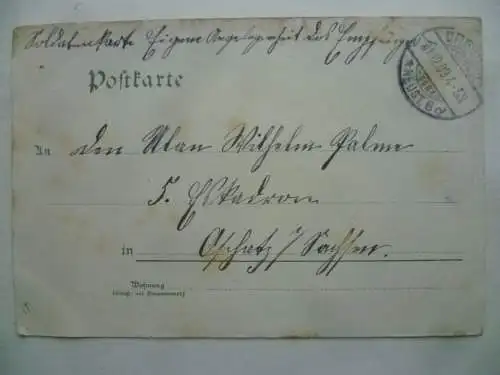 Soldatenkarte Eigene Angelegenheit des Empfängers
Postkarte
An den Ulan Wilhelm Palme
5. Eskadron
in Oschatz i/ Sachsen.
Wohnung
(Straße und Hausnummer)
NEUST. 6 d